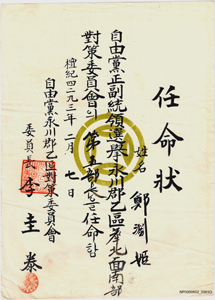 任命狀
姓名 鄭
自由黨正副統領選擧永川郡乙區華北面南部
對策委員會의 第五部長으로 任命함
檀紀四二九三年二月七日
自由黨永川郡乙區對策委員會
委員長 李圭泰